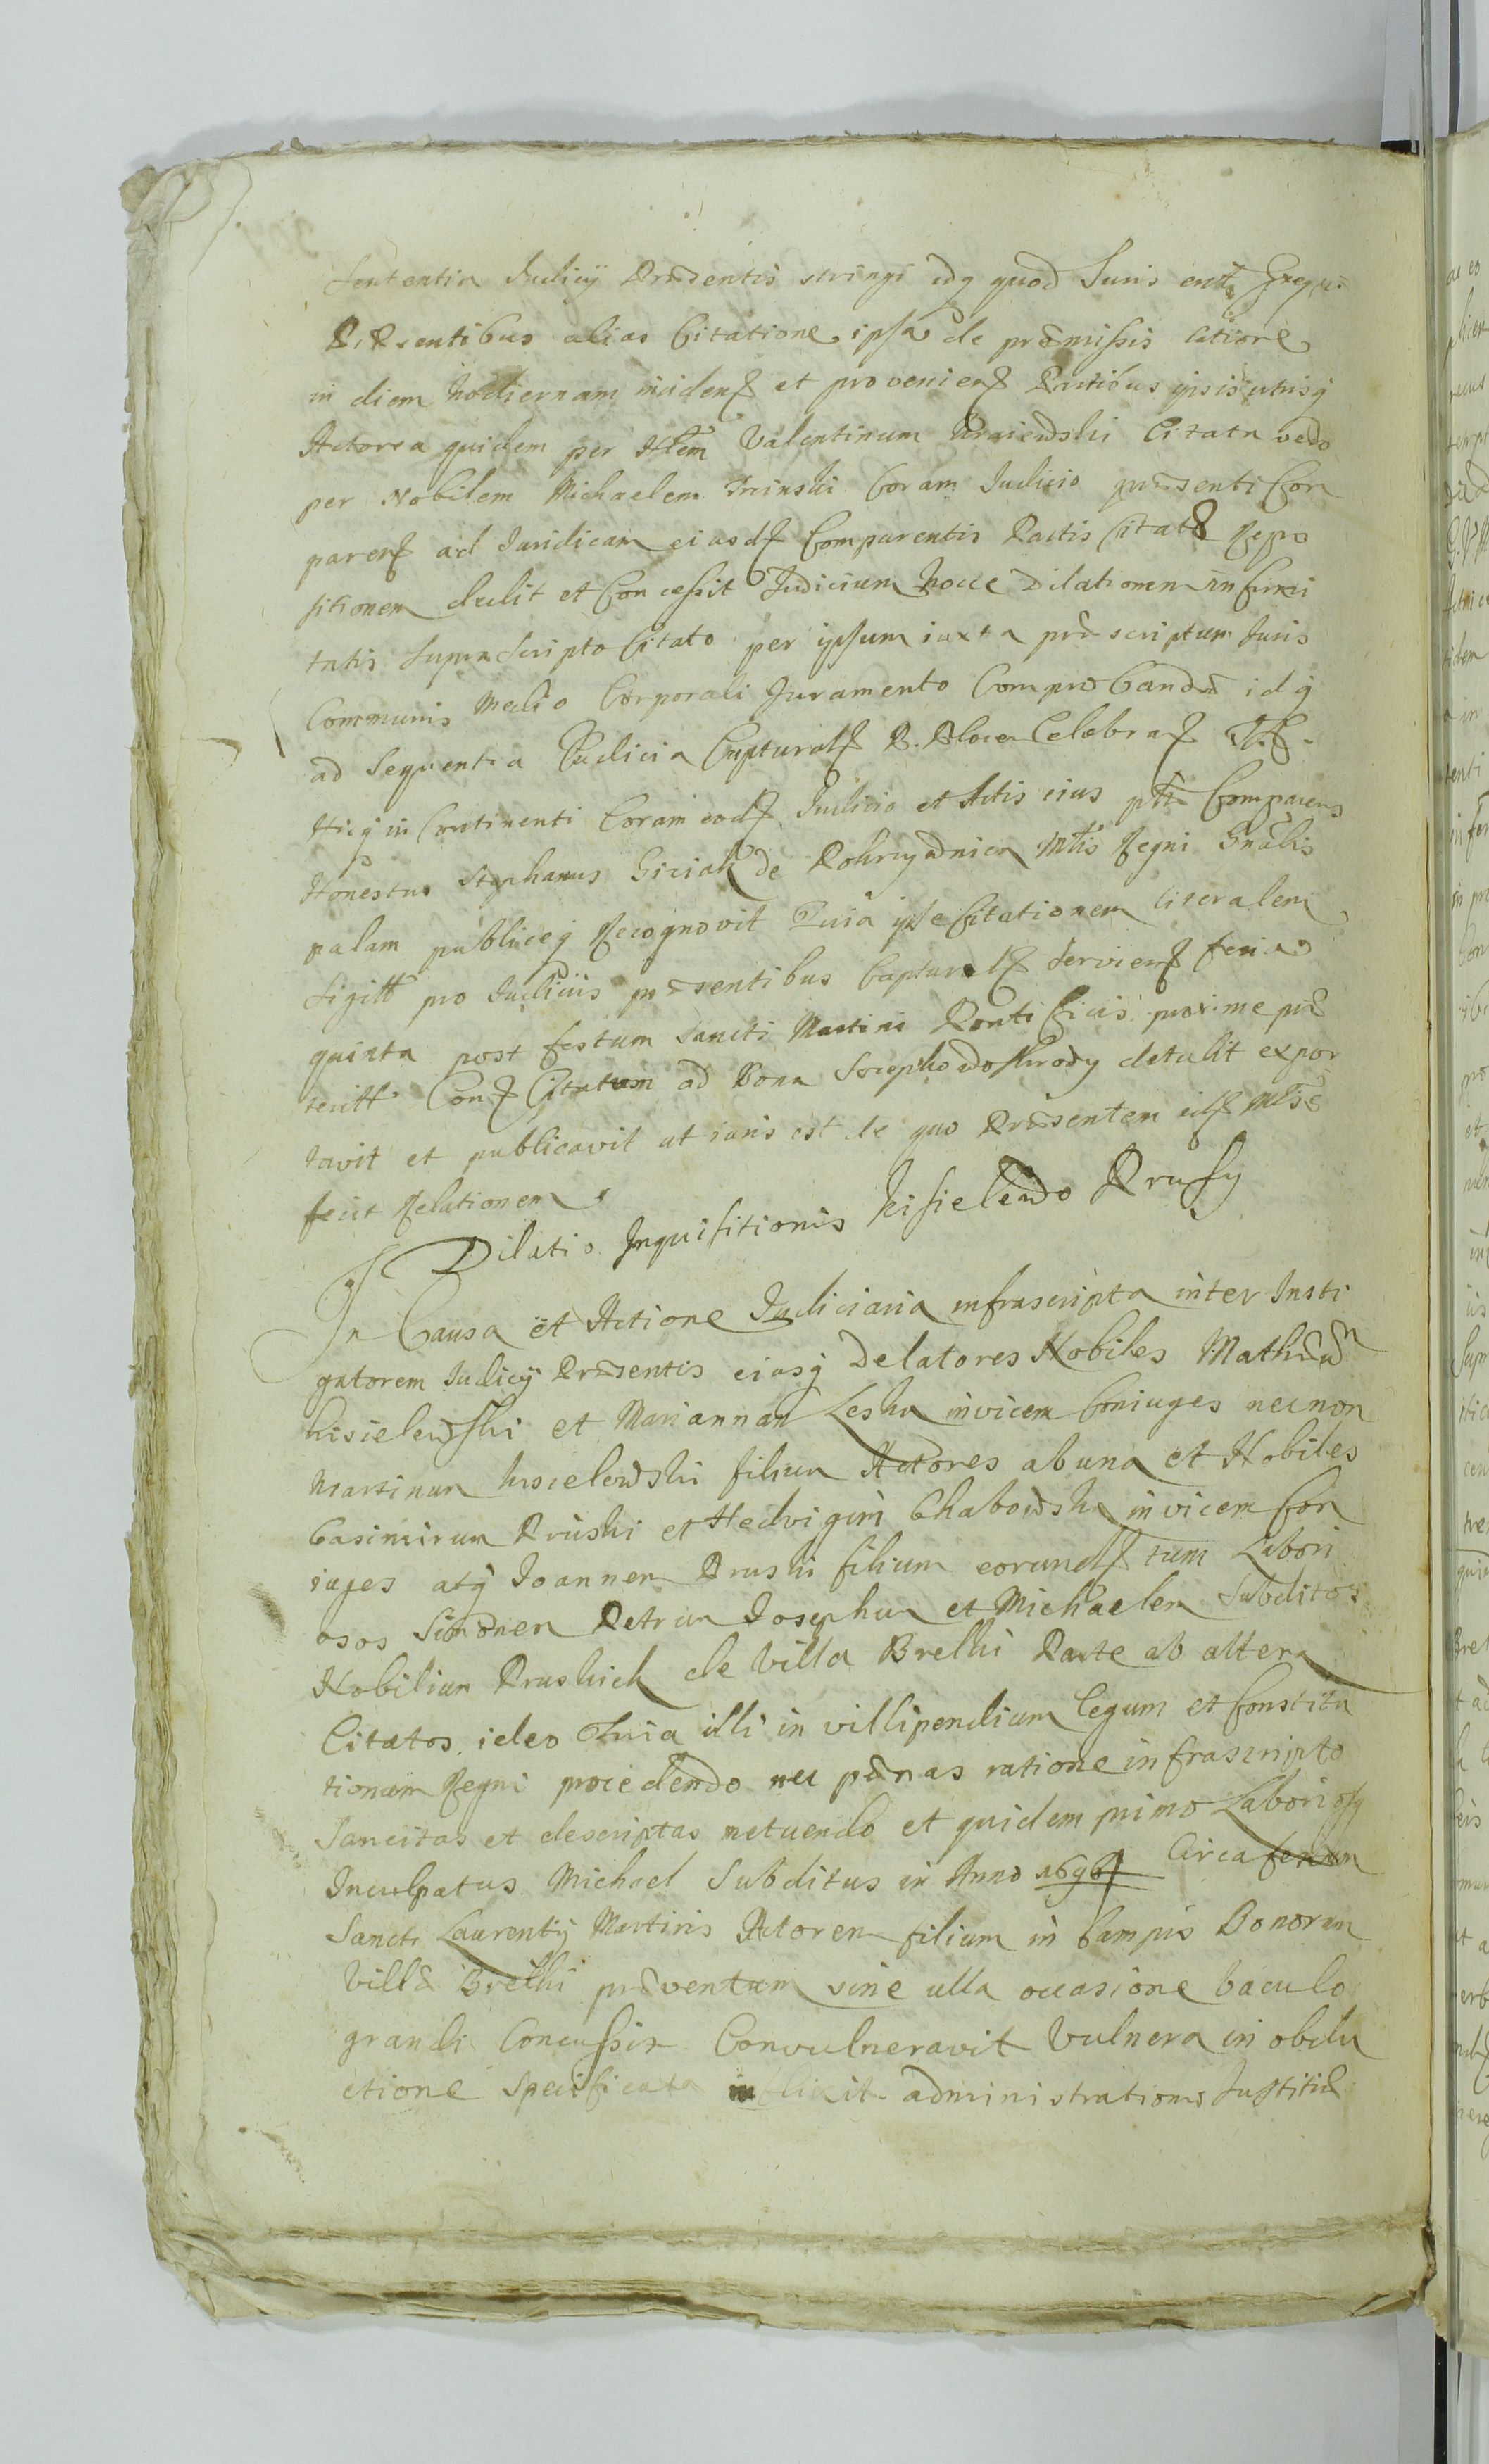 Sententia Judicij Præsentis stringi idq quod Juris erit
Præsentibus alias Citatione ipsa de præmissis latiore
in diem hodiernam inciden et provenien Partibus ipsis utrisq
Actorea quidem per Nlem Valentinum Citata vero
per Nobilem Michaelem Coram Judicio præsenti Com
paren ad Juridicam eiusd Comparentis Partis Citatæ Repo
sitionem dedit et Concessit Judicium hocce Dilationem infirmi
tatis suprascripto Citato per ipsum iuxta præscriptum Juris
Communis Medio Corporali Juramento Comprobandæ idq
ad Sequentia Judicia Captural P. Plocen Celebran
Hicq in Continenti Coram eod Judicio et Actis eius pñtibus Comparens
Honestus Stephanus Giziak de Pokrzywnica Mtis Regni Gnalis
palam publiceq Recognovit Quia ipse Citationem literalem
Sigill pro Judiciis præsentibus Captural Servien feria
quinta post festum Sancti Martini Pontificis proxime præ
teritt Con Citatum ad Bona detulit expor
tavit et publicavit ut iuris est de quo Præsentem id Mlis
fecit Relationem
Dilatio Inquisitionis Kisielewo Prusy
In Causa et Actione Judiciaria infrascripta inter Insti
gatorem Judicij Præsentis eiusq Delatores Nobiles Mathæum
Kisielewski et Mariannam Leska invicem Coniuges necnon
Martinum Kisielewski filium Actores ab una et Nobiles
Casimirum Pruski et Hedvigim Chabowska invicem Con
iuges atq Joannem Pruski filium eorund tum Labori
osos Simonem Petrum Josephum et Michaelem Subditos
Nobilium Pruskich de Villa Brelki Parte ab altera
Citatos, ideo Quia illi in villipendium legum et Constitu
tionum Regni procedendo nec pænas ratione infrascripto
Sancitas et descriptas metuendo et quidem primo Laboriosq
Inculpatus Michael Subditus in Anno 1696 Circa festum
Sancti Laurentij Martiris Actorem filium in Campis Bonorum
Villæ Brelki præventum sine ulla occasione baculo
grandi Concussit Convulneravit Vulnera in obdu
ctione specificata inflixit administrationis Justitiæ